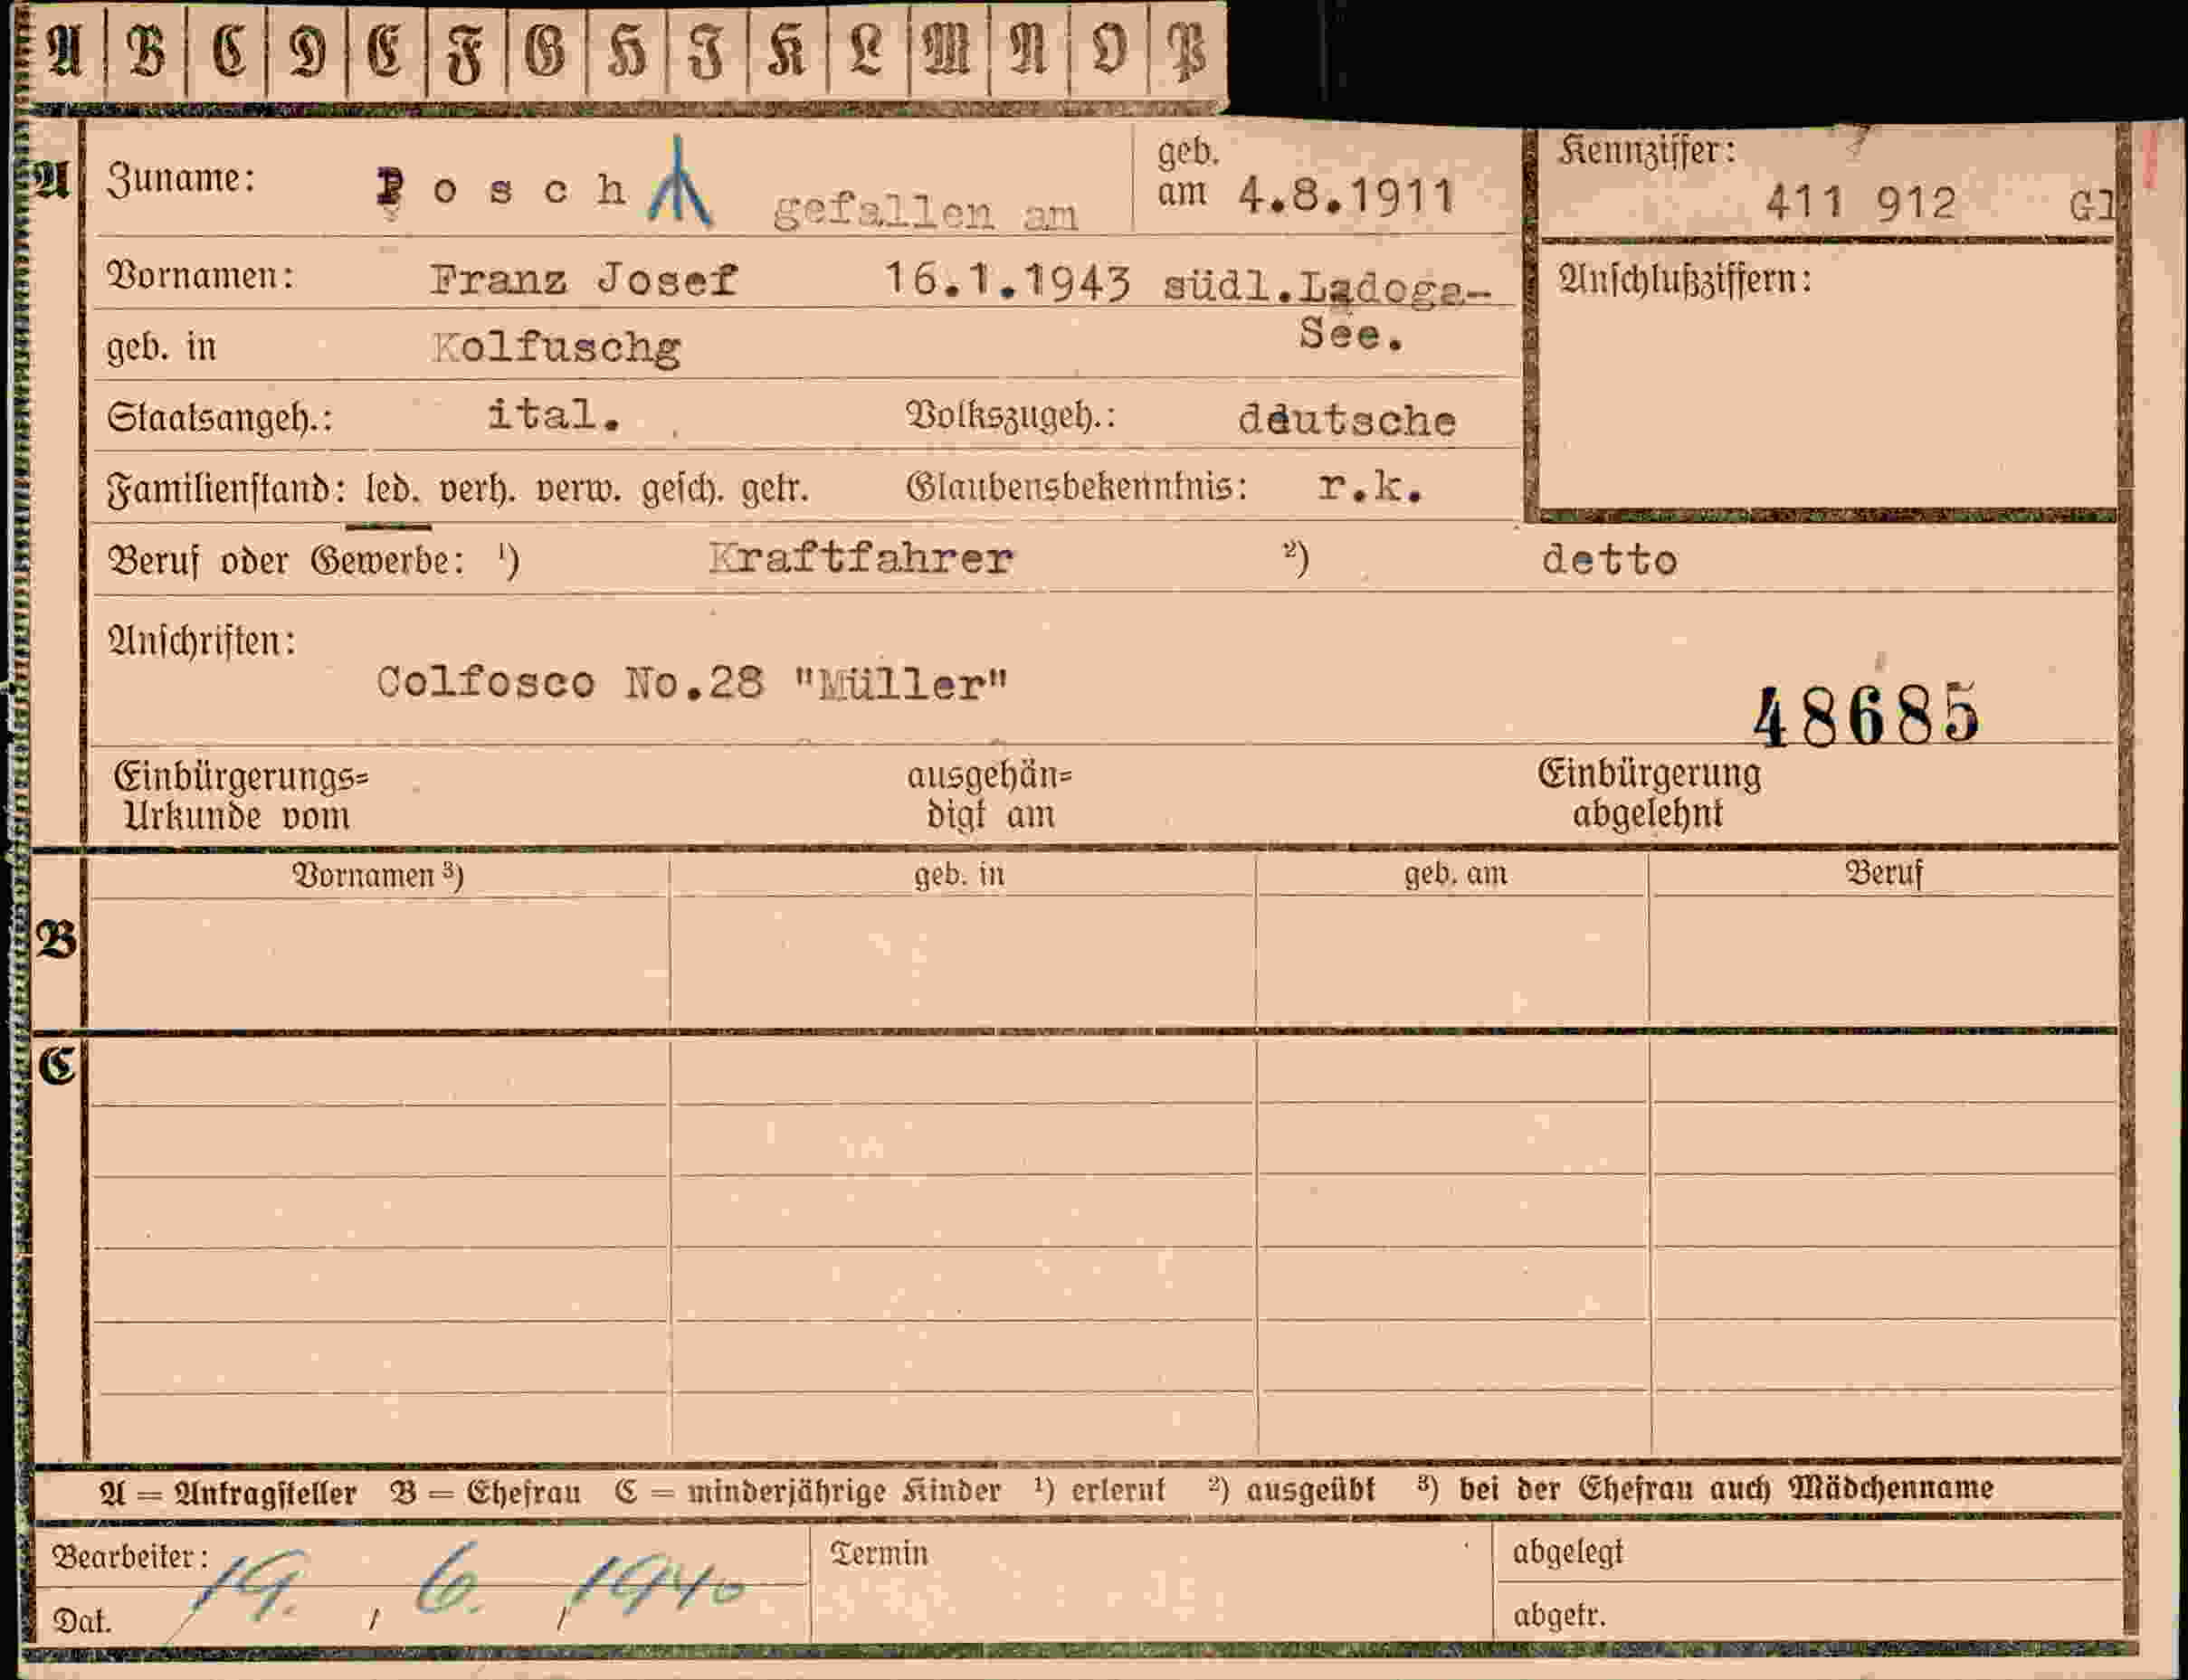 A B C D E F G H J K L M N O P
A Zuname: Posch gefallen am geb. am 4.8.1911 Kennziffer: 411 912 Gl
Vornamen: Franz Josef 16.1.1943 südl.Ladoga-
See.
Anschlußziffern:
geb. in Kolfuschg
Staatsangeh.: ital. Volkszugeh.: deutsche
Familienstand: led. verh. verw. gesch. getr. Glaubensbekenntnis: r.k.
Beruf oder Gewerbe: ¹) Kraftfahrer ²) detto
Anschriften:
Colfosco No.28 "Müller"
48685
Einbürgerungs= ausgehän= Einbürgerung
Urkunde vom digt am abgelehnt
Vornamen ³) geb. in geb. am Beruf
B
C
A = Antragsteller B = Ehefrau C = minderjährige Kinder ¹) erlernt ²) ausgeübt ³) bei der Ehefrau auch Mädchenname
Bearbeiter: Termin abgelegt
Dat. 19. / 6. / 1940 abgetr.